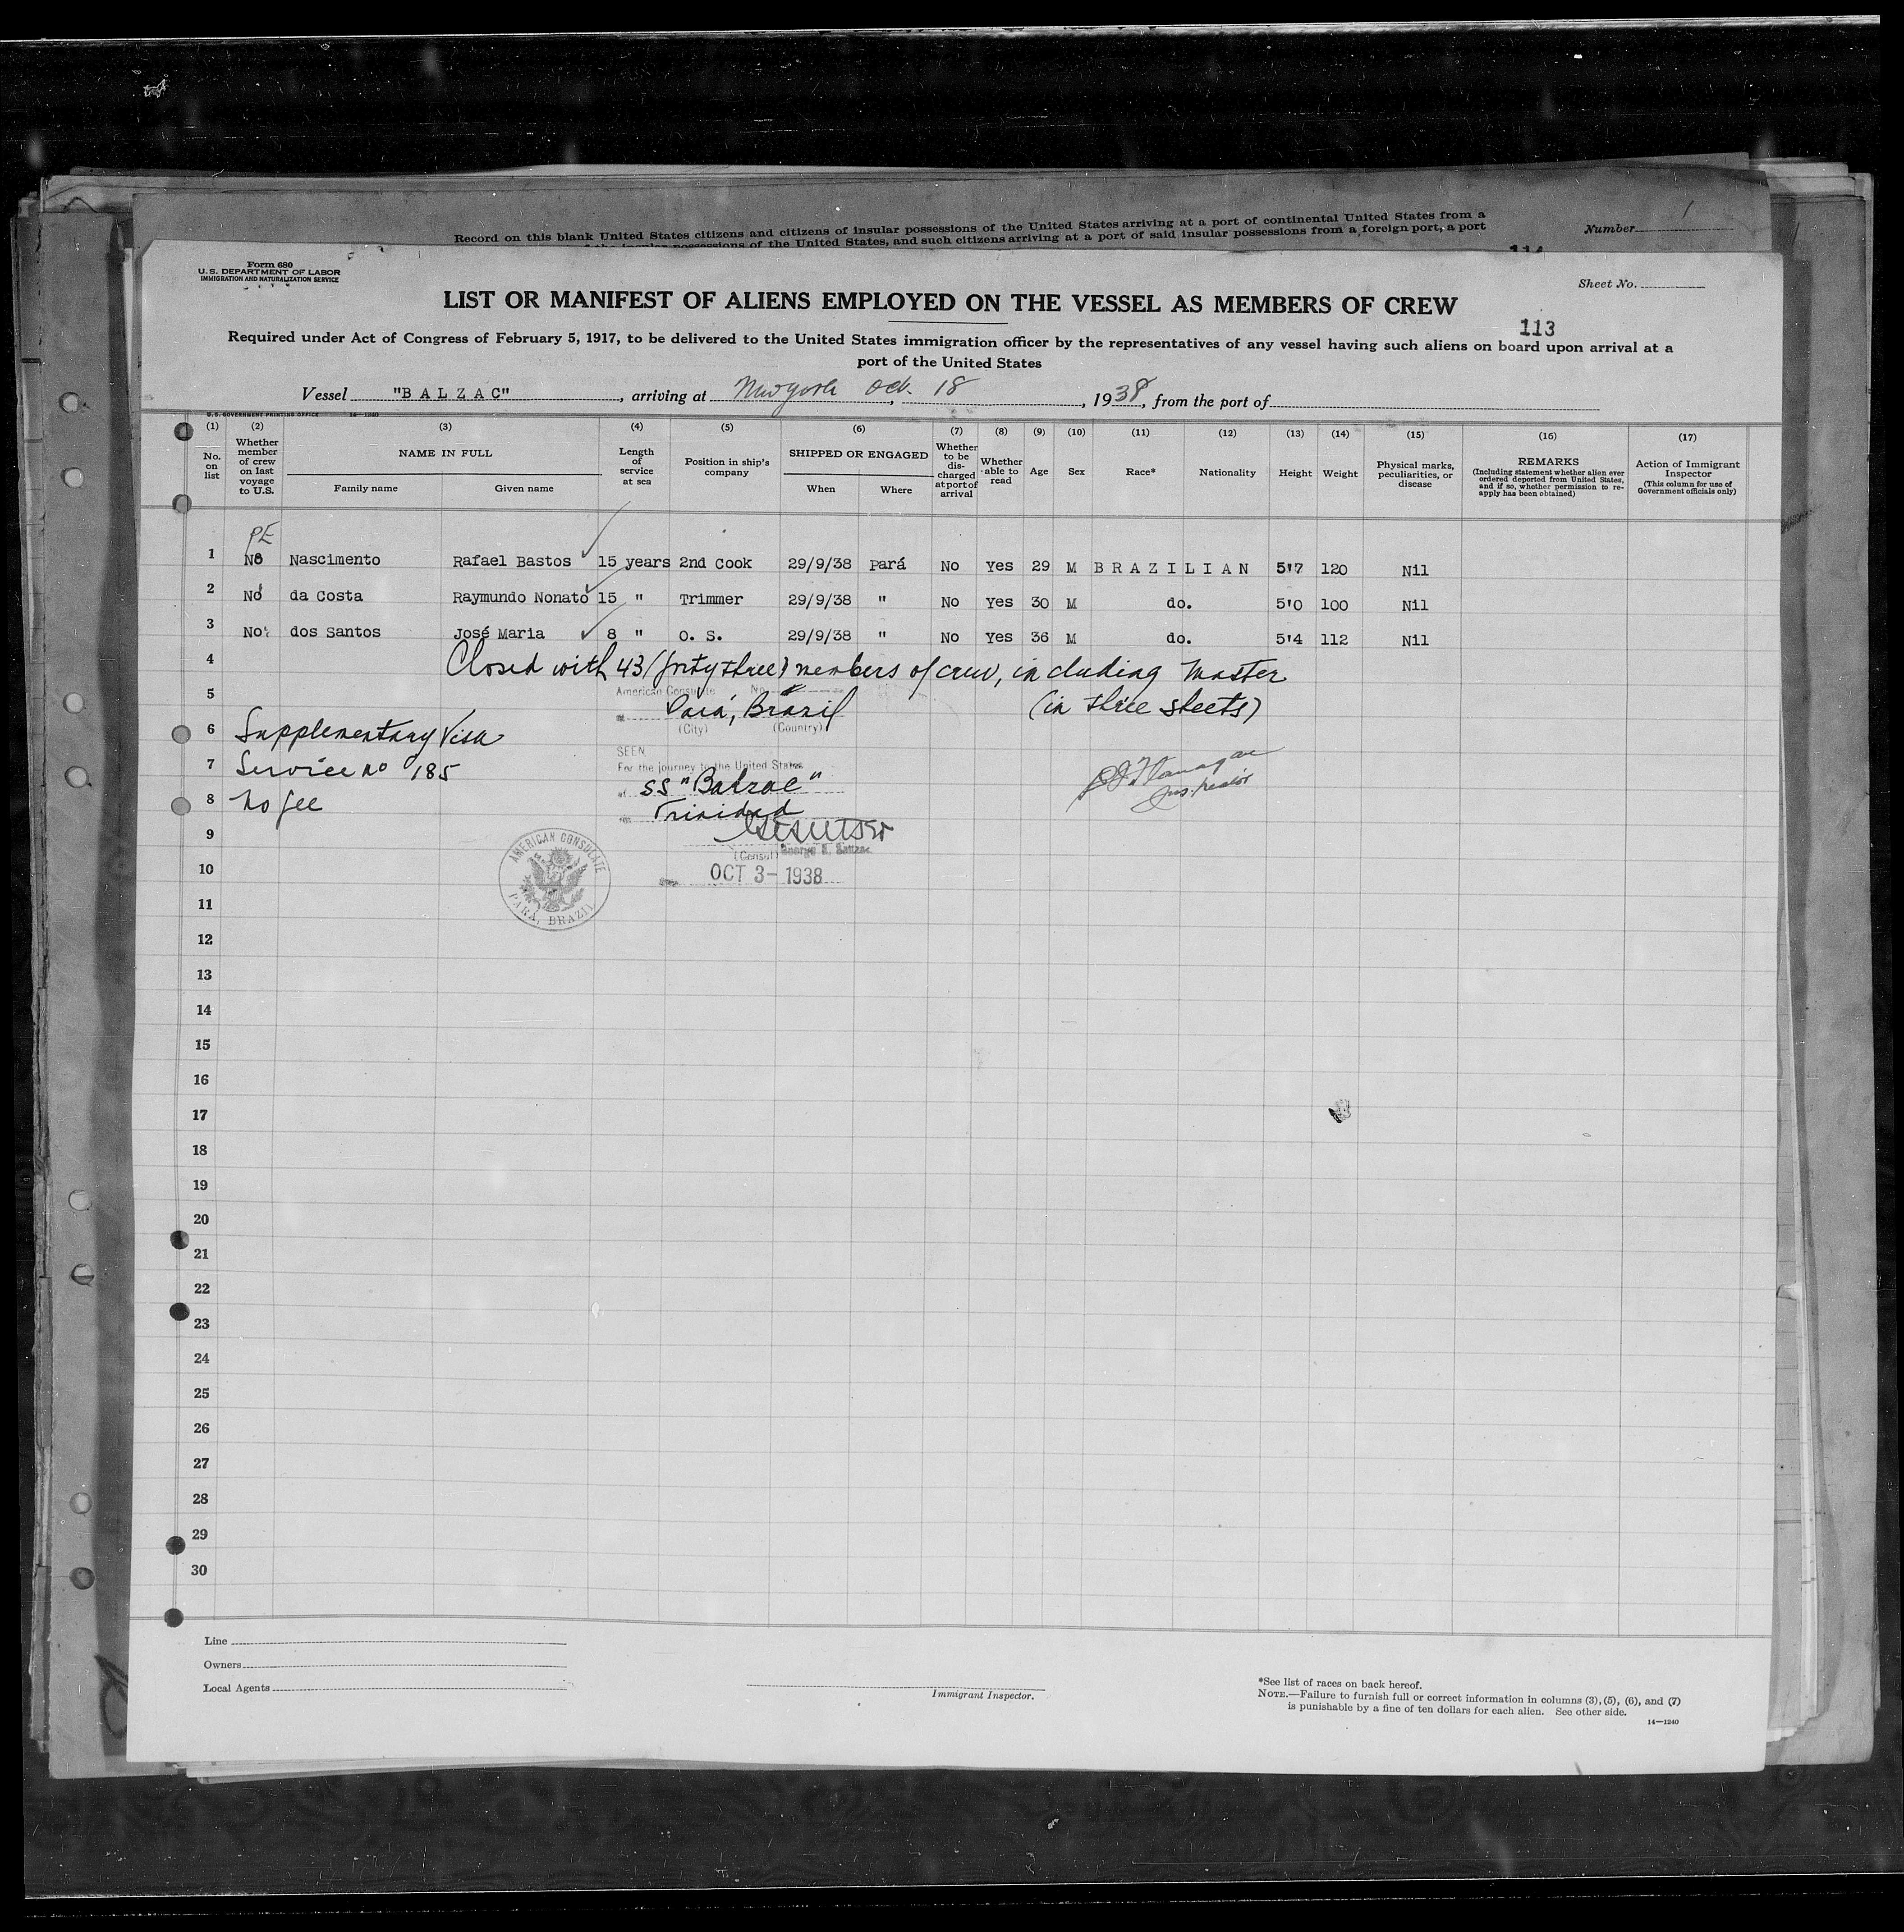 Record on this blank United States citizens and citizens of insular possessions of the United States arriving at a port of continental United States from a
possessions of the United States, and such citizens arriving at a port of said insular possessions from a foreign port, a port
Number
1
Form 680
U.S. DEPARTMENT OF LABOR
IMMIGRATION AND NATURALIZATION SERVICE
Sheet No.
LIST OR MANIFEST OF ALIENS EMPLOYED ON THE VESSEL AS MEMBERS OF CREW
113
Required under Act of Congress of February 5, 1917, to be delivered to the United States immigration officer by the representatives of any vessel having such aliens on board upon arrival at a
port of the United States
Vessel "BALZAC", arriving at New York Oct. 18, 1938, from the port of
U.S. GOVERNMENT PRINTING OFFICE 14—1240
(1) (2) (3) (4) (5) (6) (7) (8) (9) (10) (11) (12) (13) (14) (15) (16) (17)
No. on list
Whether member of crew on last voyage to U.S.
NAME IN FULL
Family name Given name
Length of service at sea
Position in ship's company
SHIPPED OR ENGAGED
When Where
Whether to be discharged at port of arrival
Whether able to read
Age
Sex
Race*
Nationality
Height
Weight
Physical marks, peculiarities, or disease
REMARKS
(Including statement whether alien ever ordered deported from United States, and if so, whether permission to reapply has been obtained)
Action of Immigrant Inspector
(This column for use of Government officials only)
PE
1 No Nascimento Rafael Bastos 15 years 2nd Cook 29/9/38 Pará No Yes 29 M BRAZILIAN 5'7 120 Nil
2 No da Costa Raymundo Nonato 15 " Trimmer 29/9/38 " No Yes 30 M do. 5'0 100 Nil
3 No dos Santos José Maria 8 " O. S. 29/9/38 " No Yes 36 M do. 5'4 112 Nil
4 Closed with 43 (forty three) members of crew, including Master
American Consulate No.
5 Pará, Brazil (in three sheets)
(City) (Country)
6 Supplementary Visa
SEEN
7 Service No 185
For the journey to the United States
SS "Balzac"
8 No fee
Trinidad
Inspector
9
(Consul)
10 OCT 3- 1938
AMERICAN CONSULATE
PARÁ, BRAZIL
11
12
13
14
15
16
17
18
19
20
21
22
23
24
25
26
27
28
29
30
Line
Owners
Local Agents
Immigrant Inspector.
*See list of races on back hereof.
NOTE.—Failure to furnish full or correct information in columns (3), (5), (6), and (7)
is punishable by a fine of ten dollars for each alien. See other side.
14—1240